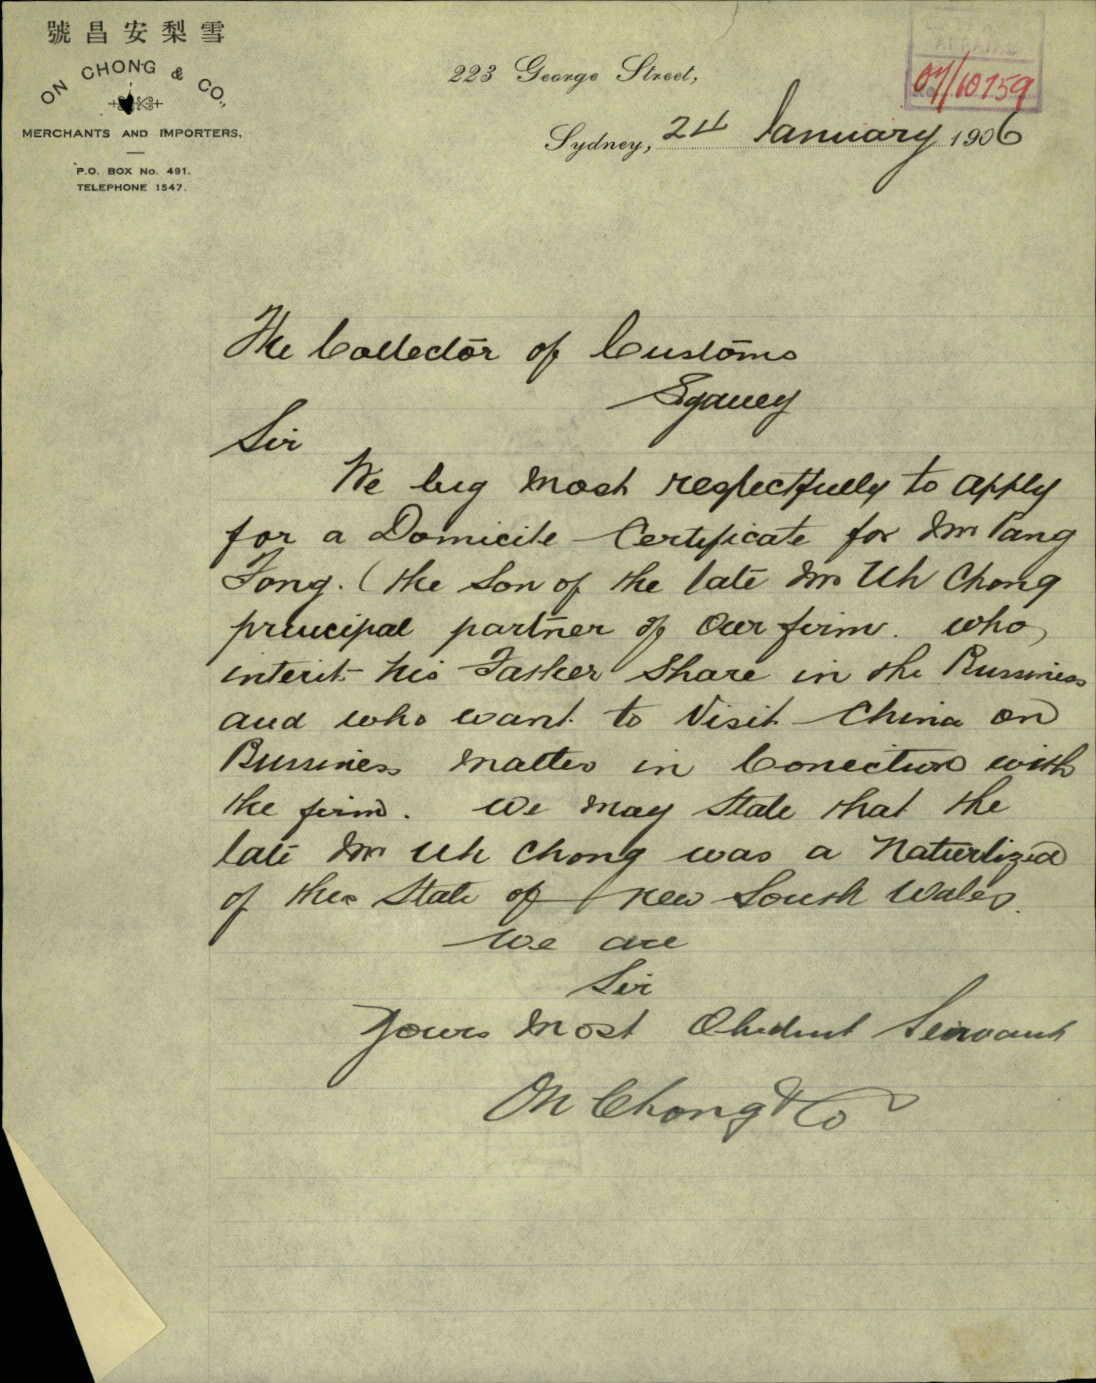 號昌安梨雪
ON CHONG & CO.,
MERCHANTS AND IMPORTERS,
P.O. BOX No. 491.
TELEPHONE 1547.
223 George Street,
07/10159
Sydney, 24 January 1906
The Collector of Customs
Sydney
Sir
We beg most respectfully to apply
for a Domicile Certificate for Mr Pang
Fong. (the Son of the late Mr Uh Chong
principal partner of our firm. who
interit his Father Share in the Bussiness
and who want to Visit China on
Bussiness matter in Conection with
the firm. We may State that the
late Mr Uh Chong was a Naturlized
of this State of New South Wales.
We are
Sir
Yours most Obedient Servant
On Chong & Co